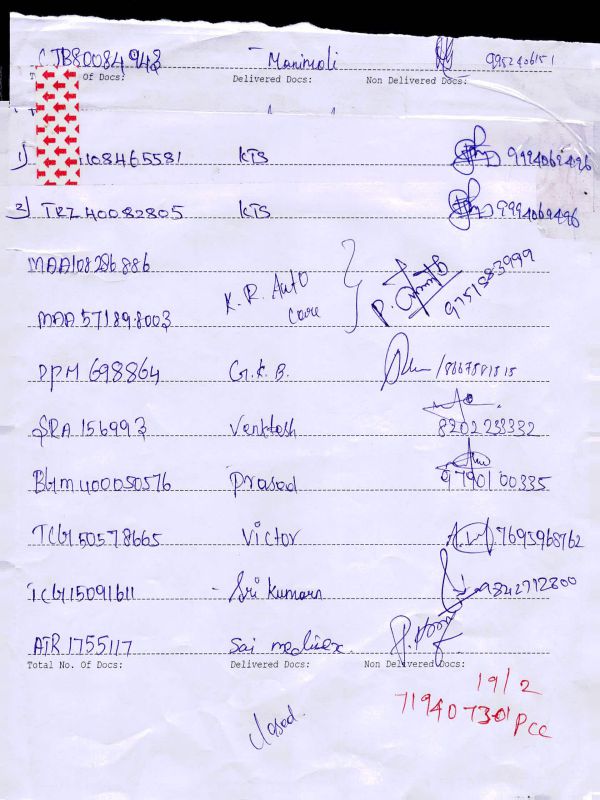 CJB80084943 Manimoli 9952406151
Of Docs: Delivered Docs: Non Delivered Docs:
1) 108465581 KTS 9994069496
2) TRZ 40082805 KTS 9994069496
MAA108286886
K.R. Auto Care P. 9751583999
MAA 571898003
DPM 698864 G.K.B. /8667581515
SRA 156993 Venktesh 8202233332
BGM400050576 Prasad 9790100335
TCG150578665 Victor 7693968762
TCG115091611 Sri Kumarn 9842712800
ATR 1755117 Sai medinex
Total No. Of Docs: Delivered Docs: Non Delivered Docs:
19/2
closed. 719407301 Pcc